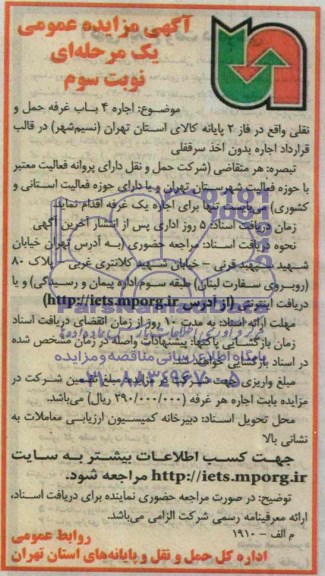 آگهی مزایده عمومی
یک مرحله‌ای
نوبت سوم
موضوع: اجاره ۴ باب غرفه حمل و
نقلی واقع در فاز ۲ پایانه کالای استان تهران (نسیم‌شهر) در قالب
قرارداد اجاره بدون اخذ سرقفلی
تبصره: هر متقاضی (شرکت حمل و نقل دارای پروانه فعالیت معتبر
با حوزه فعالیت شهرستان تهران و یا دارای حوزه فعالیت استانی و
کشوری) می‌بایست تنها برای اجاره یک غرفه اقدام نماید
زمان دریافت اسناد: ۵ روز اداری پس از انتشار آخرین آگهی
نحوه دریافت اسناد: مراجعه حضوری (به آدرس تهران خیابان
شهید سپهبد قرنی - خیابان شهید کلانتری غربی - پلاک ۸۰
(روبروی سفارت لبنان) طبقه سوم اداره پیمان و رسیدگی) و یا
دریافت اینترنتی (از آدرس http://iets.mporg.ir)
مهلت ارائه اسناد: به مدت ۱۰ روز از زمان انقضای دریافت اسناد
زمان بازگشایی پاکتها: پیشنهادات واصله در زمان مشخص شده
در اسناد بازگشایی خواهد
پایگاه اطلاع رسانی مناقصه و مزایده
مبلغ واریزی جهت شرکت در مزایده: مبلغ تضمین شرکت در
مزایده بابت اجاره هر غرفه (۳۹۰/۰۰۰/۰۰۰) ریال) می‌باشد.
محل تحویل اسناد: دبیرخانه کمیسیون ارزیابی معاملات به
نشانی بالا
جهت کسب اطلاعات بیشتر به سایت
http://iets.mporg.ir مراجعه شود.
توضیح: در صورت مراجعه حضوری نماینده برای دریافت اسناد،
ارائه معرفینامه رسمی شرکت الزامی می‌باشد.
م الف - ۱۹۱۰
روابط عمومی
اداره کل حمل و نقل و پایانه‌های استان تهران